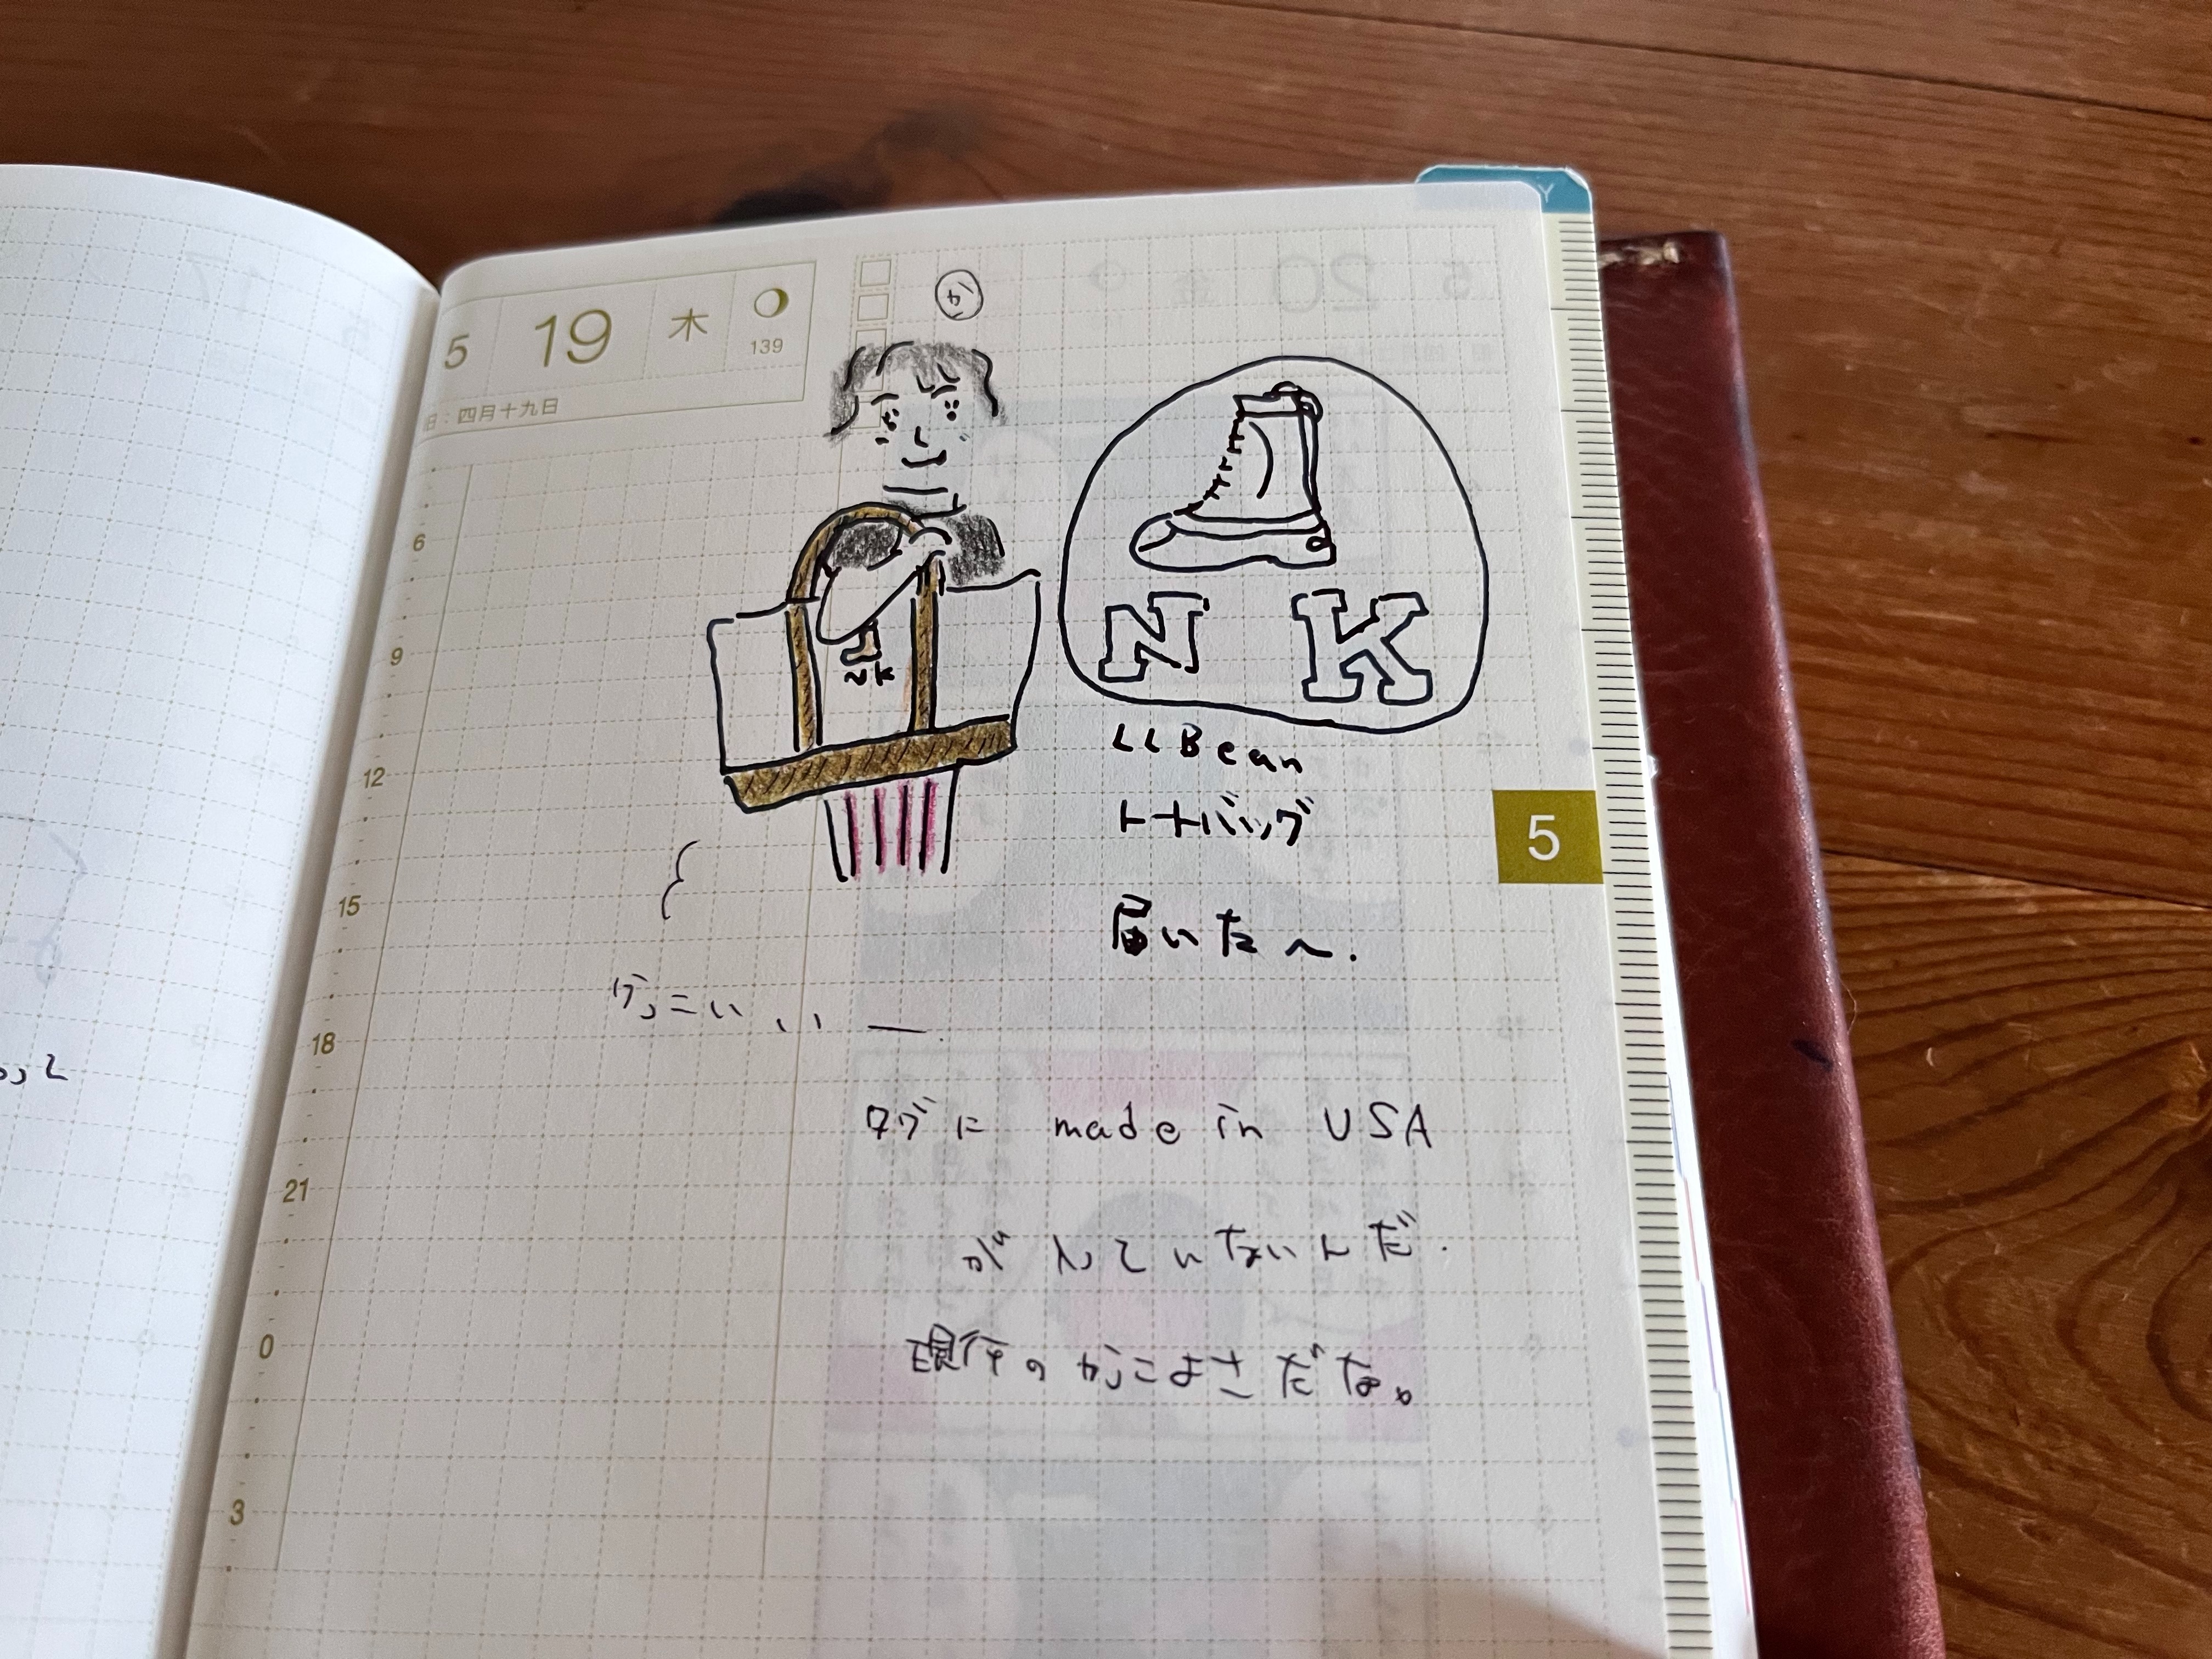 5 19 木
139
旧：四月十九日
19
N K
N K
LLBean
トートバッグ
届いた〜.
かっこいいー.
タグに made in USA
が入っていないんだ.
現行のかっこよさだな。
6
9
12
15
18
21
0
3
5
Y